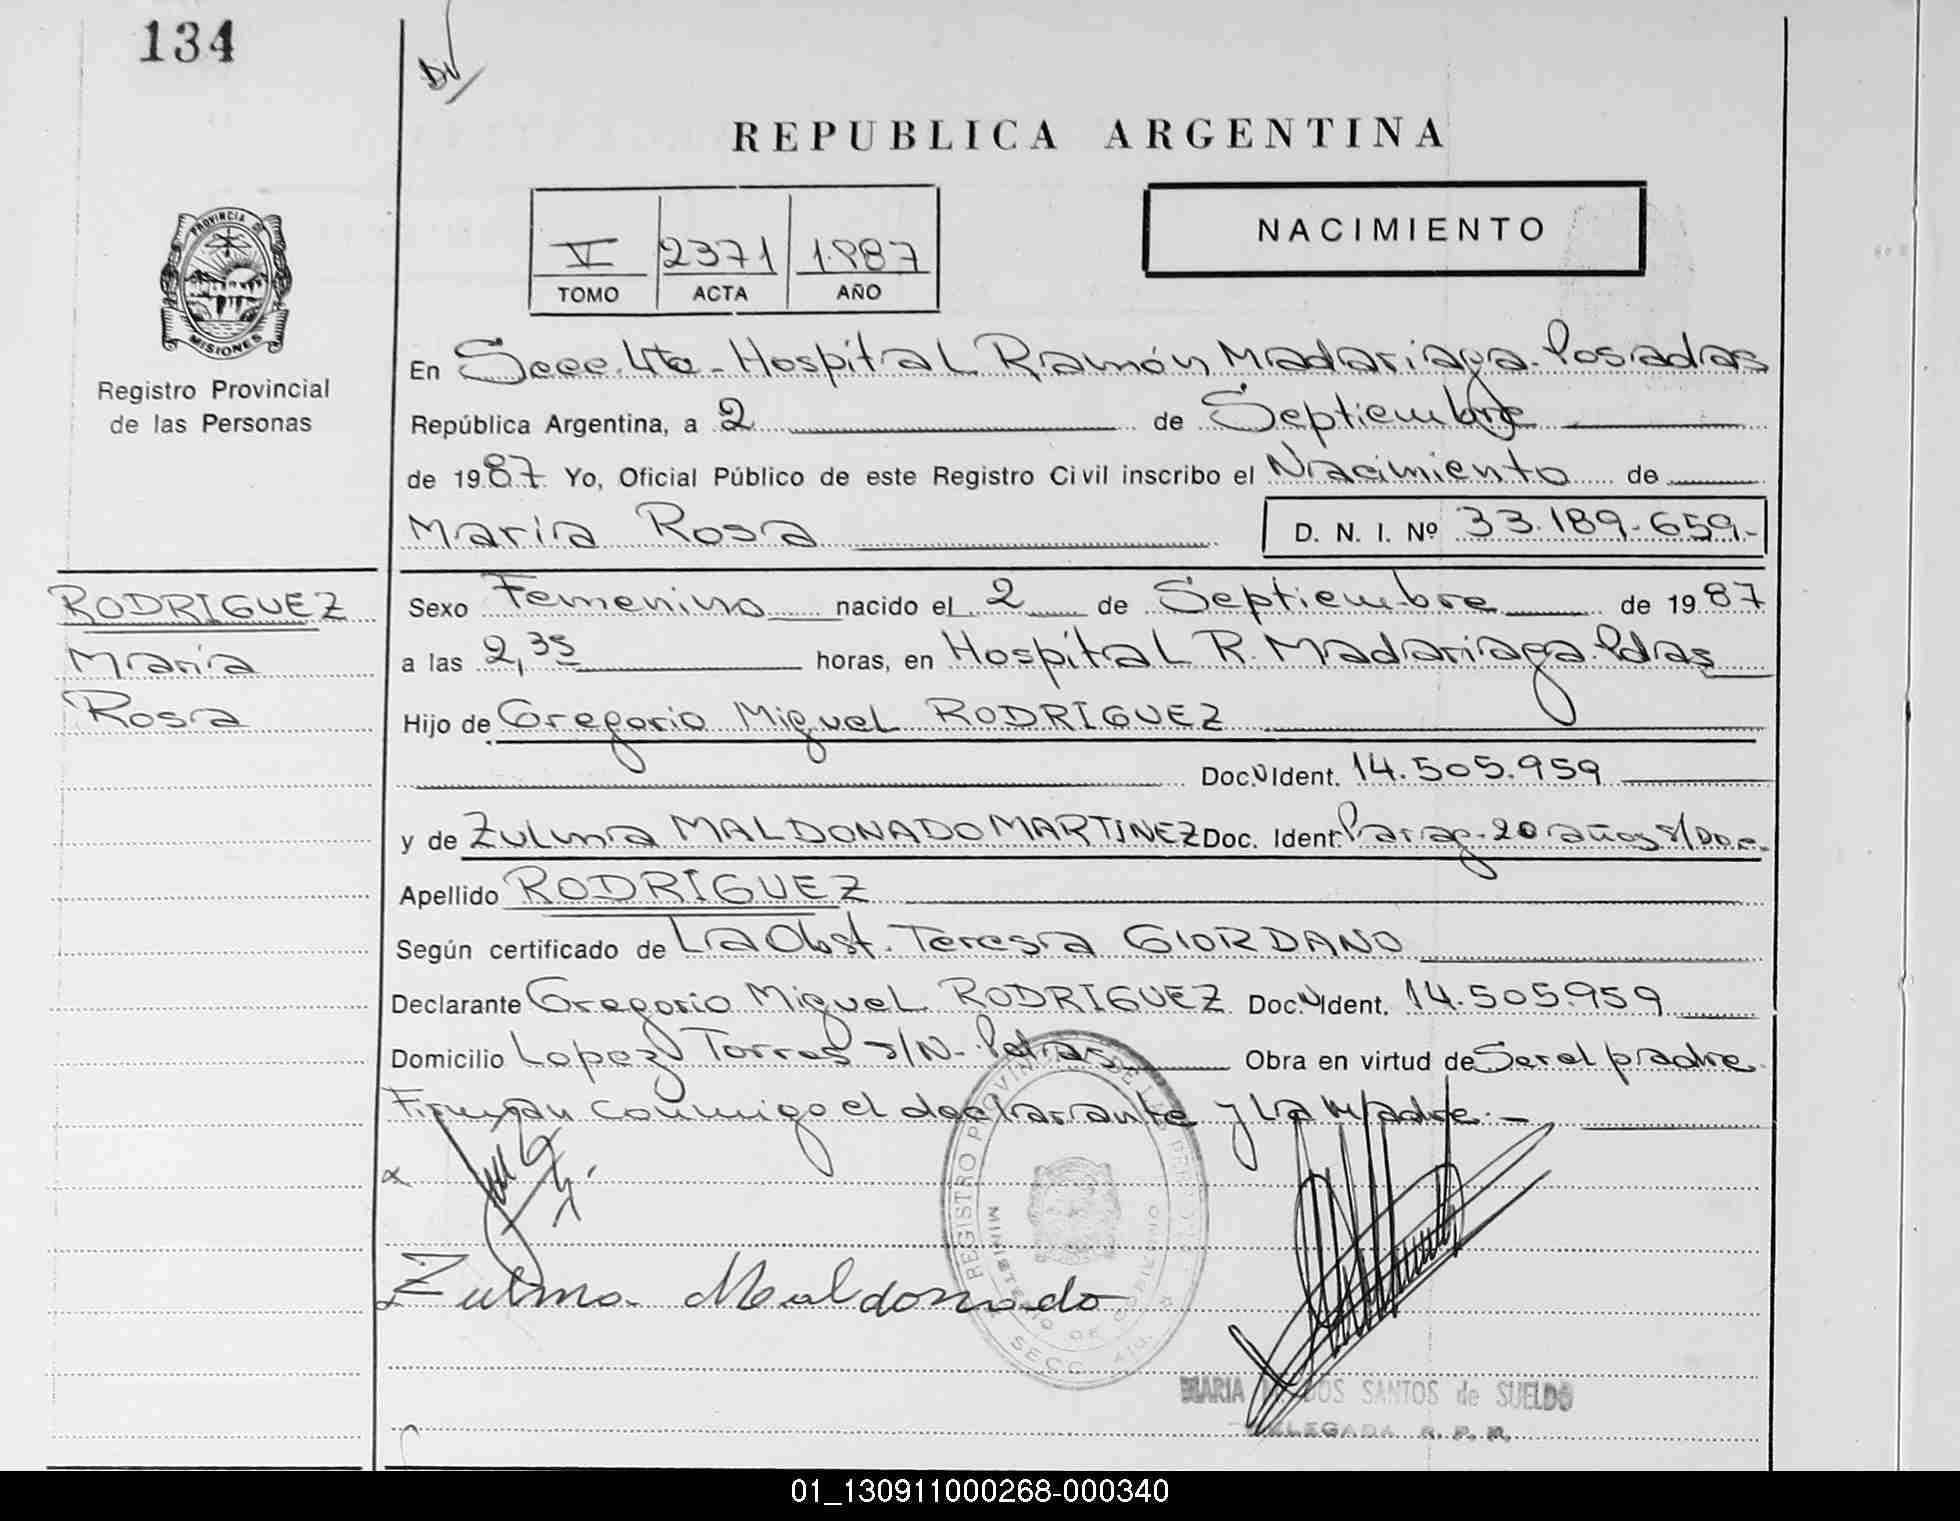 134
DV
REPUBLICA ARGENTINA
V 2371 1987
TOMO ACTA AÑO
NACIMIENTO
PROVINCIA DE
MISIONES
Registro Provincial
de las Personas
En Secc. 4ta - Hospital Ramón Madariaga - Posadas
República Argentina, a 2 de Septiembre
de 1987 Yo, Oficial Público de este Registro Civil inscribo el Nacimiento de
María Rosa D. N. I. Nº 33.189.659.-
RODRIGUEZ
María
Rosa
Sexo Femenino nacido el 2 de Septiembre de 1987
a las 2,35 horas, en Hospital R. Madariaga. Pdas
Hijo de Gregorio Miguel RODRIGUEZ
Doc. N Ident. 14.505.959
y de Zulma MALDONADO MARTINEZ Doc. Ident. Parag - 20 años s/Doc.
Apellido RODRIGUEZ
Según certificado de La Obst. Teresa GIORDANO
Declarante Gregorio Miguel RODRIGUEZ Doc. N Ident. 14.505.959
Domicilio Lopez Torres s/N - Pdas Obra en virtud de Ser el padre
Firman conmigo el declarante y La Madre.-
Zulma Maldonado
REGISTRO PROVINCIAL DE LAS PERSONAS
MINISTERIO DE GOBIERNO
SECC. 4TA.
MARIA DOS SANTOS de SUELDO
DELEGADA R. P. P.
01_130911000268-000340